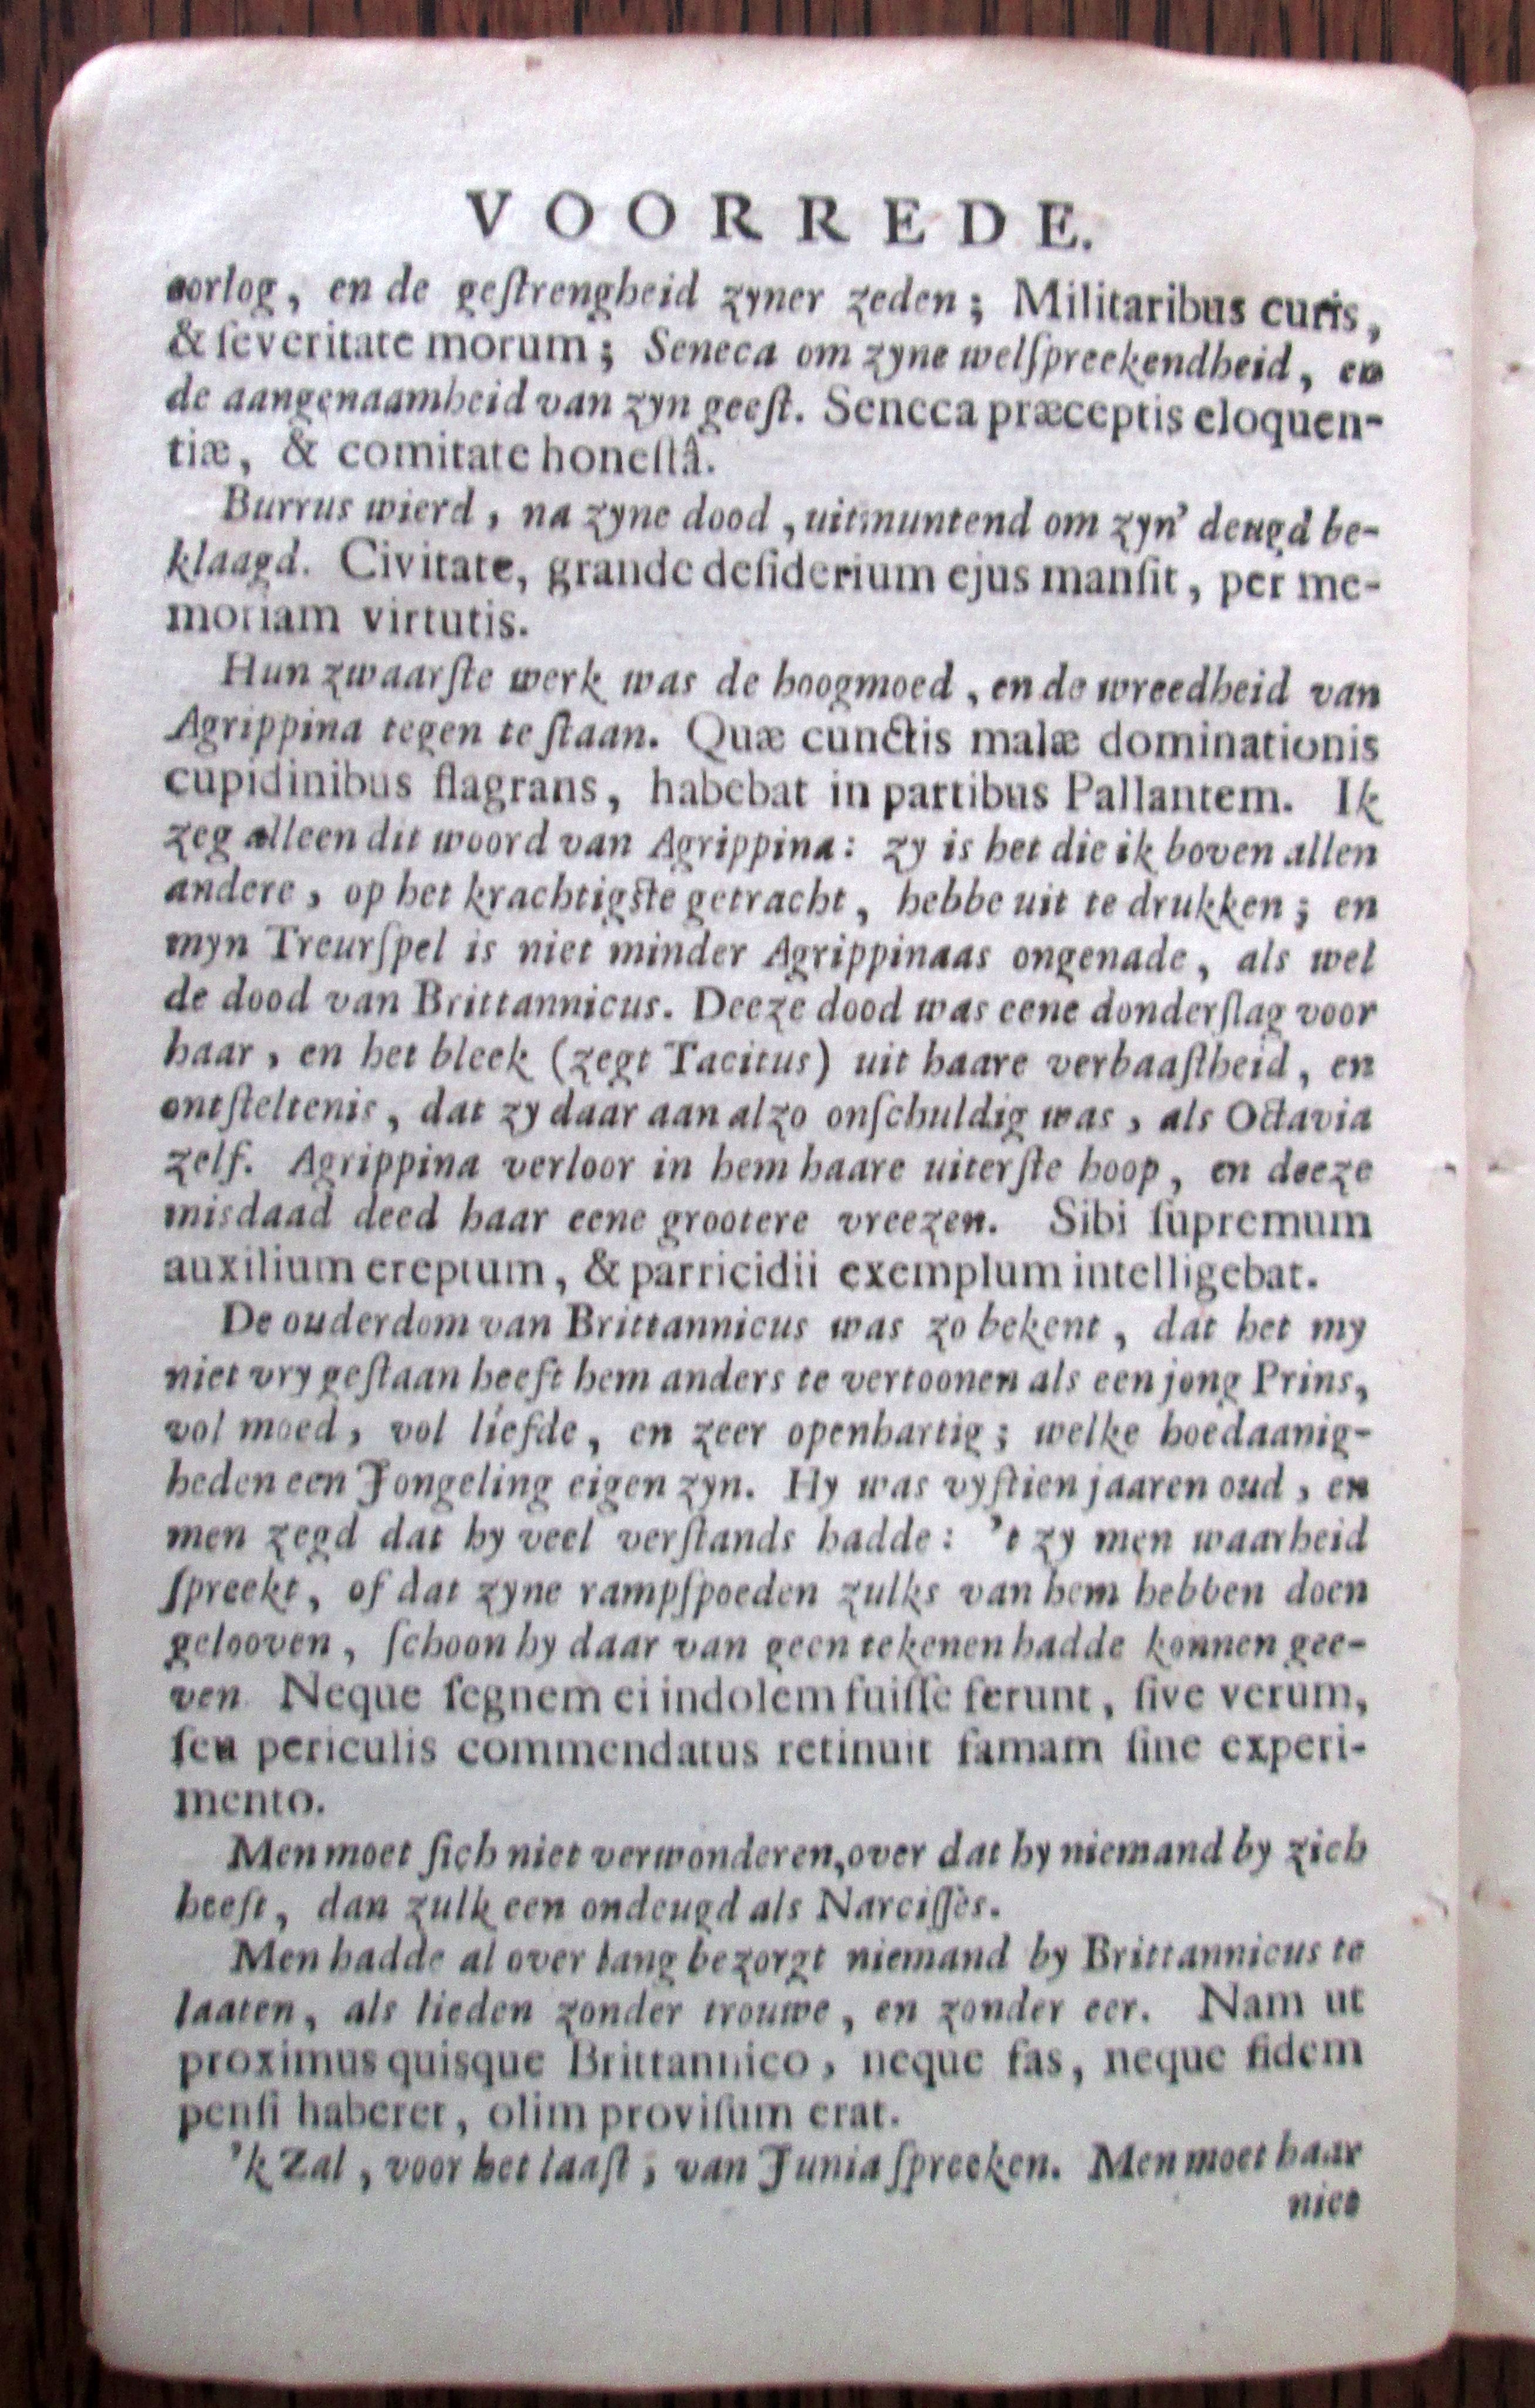 VOORREDE.
oorlog, en de geſtrengheid zyner zeden; Militaribus curis,
& ſeveritate morum; Seneca om zyne welſpreekendheid, en
de aangenaamheid van zyn geeſt. Seneca præceptis eloquen-
tiæ, & comitate honeſtâ.
Burrus wierd, na zyne dood, uitmuntend om zyn' deugd be-
klaagd. Civitate, grande deſiderium ejus manſit, per me-
moriam virtutis.
Hun zwaarſte werk was de hoogmoed, en de wreedheid van
Agrippina tegen te ſtaan. Quæ cunctis malæ dominationis
cupidinibus flagrans, habebat in partibus Pallantem. Ik
zeg alleen dit woord van Agrippina: zy is het die ik boven allen
andere, op het krachtigſte getracht, hebbe uit te drukken; en
myn Treurſpel is niet minder Agrippinaas ongenade, als wel
de dood van Brittannicus. Deeze dood was eene donderſlag voor
haar, en het bleek (zegt Tacitus) uit haare verbaaſtheid, en
ontſteltenis, dat zy daar aan alzo onſchuldig was, als Octavia
zelf. Agrippina verloor in hem haare uiterſte hoop, en deeze
misdaad deed haar eene grootere vreezen. Sibi ſupremum
auxilium ereptum, & parricidii exemplum intelligebat.
De ouderdom van Brittannicus was zo bekent, dat het my
niet vry geſtaan heeft hem anders te vertoonen als een jong Prins,
vol moed, vol liefde, en zeer openhartig; welke hoedaanig-
heden een Jongeling eigen zyn. Hy was vyftien jaaren oud, en
men zegd dat hy veel verſtands hadde: 't zy men waarheid
ſpreekt, of dat zyne rampſpoeden zulks van hem hebben doen
gelooven, ſchoon hy daar van geen tekenen hadde konnen gee-
ven Neque ſegnem ei indolem fuiſſe ferunt, ſive verum,
ſeu periculis commendatus retinuit famam ſine experi-
mento.
Men moet ſich niet verwonderen, over dat hy niemand by zich
heeft, dan zulk een ondeugd als Narciſſes.
Men hadde al over lang bezorgt niemand by Brittannicus te
laaten, als lieden zonder trouwe, en zonder eer. Nam ut
proximus quisque Brittannico, neque fas, neque fidem
penſi haberet, olim proviſum erat.
'k Zal, voor het laaſt, van Junia ſpreeken. Men moet haar
niet